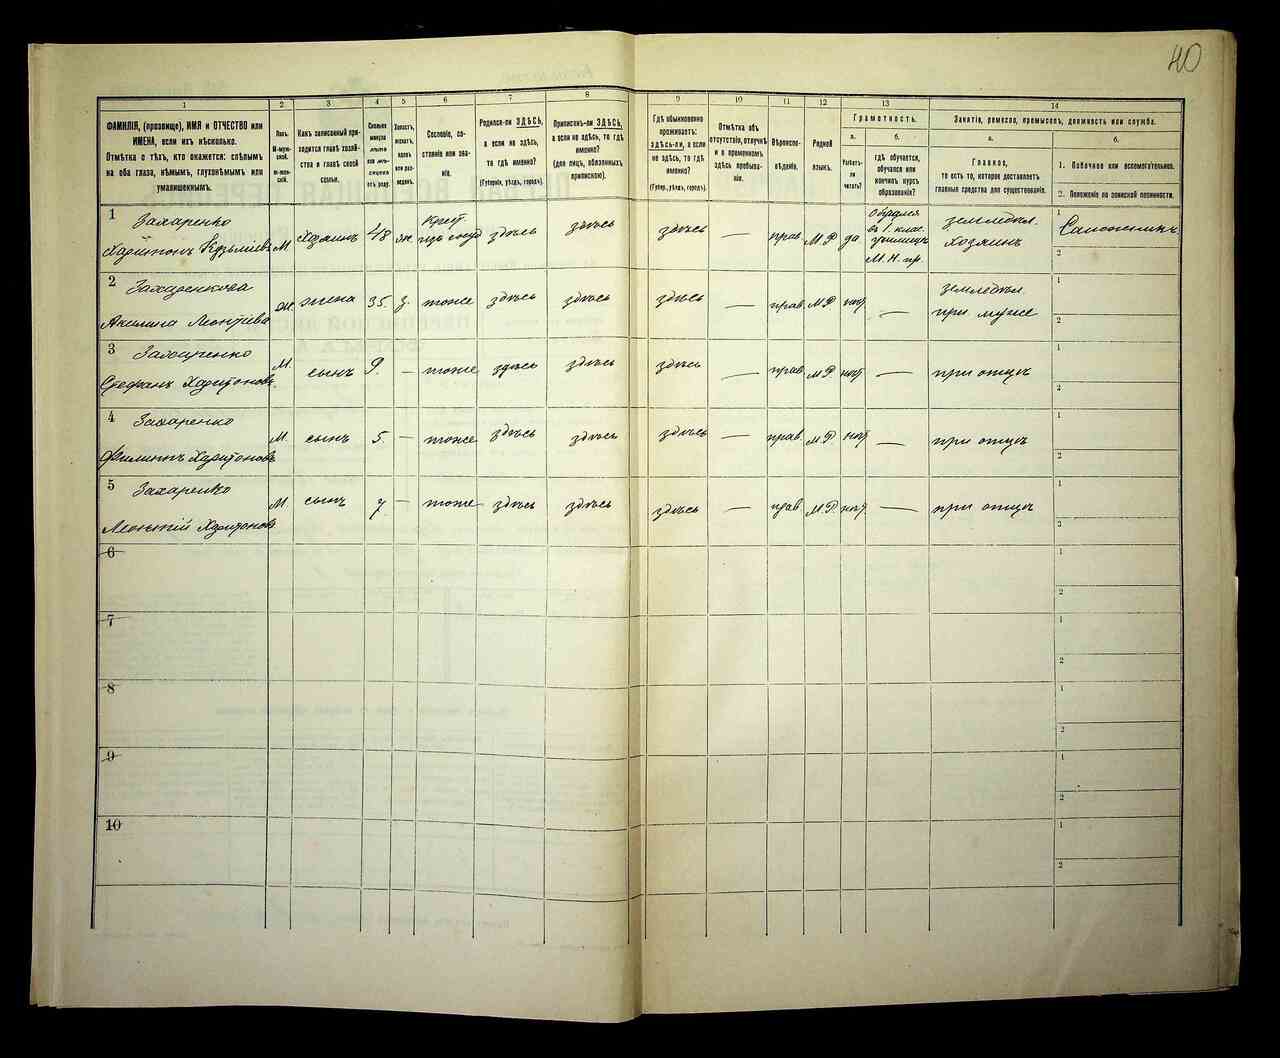 40
1 2 3 4 5 6 7 8 9 10 11 12 13 14
ФАМИЛІЯ, (прозвище), ИМЯ и ОТЧЕСТВО или
ИМЕНА, если ихъ нѣсколько.
Отмѣтка о тѣхъ, кто окажется: слѣпымъ
на оба глаза, нѣмымъ, глухонѣмымъ или
умалишеннымъ.
Полъ.
М-муж-
ской.
Ж-жен-
скій.
Какъ записанный при-
ходится главѣ хозяй-
ства и главѣ своей
семьи.
Сколько
минуло
лѣтъ
или мѣ-
сяцевъ
отъ роду.
Холостъ,
женатъ,
вдовъ
или раз-
веденъ.
Сословіе, со-
стояніе или зва-
ніе.
Родился-ли ЗДѢСЬ,
а если не здѣсь,
то гдѣ именно?
(Губернія, уѣздъ, городъ).
Приписанъ-ли ЗДѢСЬ,
а если не здѣсь, то гдѣ
именно?
(для лицъ, обязанныхъ
припискою).
Гдѣ обыкновенно
проживаетъ:
ЗДѢСЬ-ли, а если
не здѣсь, то гдѣ
именно?
(Губер., уѣздъ, городъ).
Отмѣтка объ
отсутствіи, отлучкѣ
и о временномъ
здѣсь пребыва-
ніи.
Вѣроиспо-
вѣданіе.
Родной
языкъ.
Грамотность.
а.
Умѣетъ-
ли
читать?
б.
гдѣ обучается,
обучался или
кончилъ курсъ
образованія?
Занятіе, ремесло, промыселъ, должность или служба.
а.
Главное,
то есть то, которое доставляетъ
главныя средства для существованія.
б.
1. Побочное или вспомогательное.
2. Положеніе по воинской повинности.
1 Захаренко
Харитонъ Кузьмичъ М Хозяинъ 48 ж Крест. здѣсь здѣсь здѣсь — прав. М.Р. да Обучался
въ 1 клас.
училищѣ
М. Н. пр.
земледѣл.
хозяинъ
1 Сапожникъ
2
2 Захаренкова
Акилина Леонтіева ж. жена 35. з. тоже здѣсь здѣсь здѣсь — прав. М.Р. нѣтъ —
земледѣл.
при мужѣ
1
2
3 Захаренко
Стефанъ Харитоновъ. М. сынъ 9. — тоже здѣсь здѣсь здѣсь — прав. М.Р. нѣтъ — при отцѣ
1
2
4 Захаренко
Филиппъ Харитоновъ М. сынъ 5. — тоже здѣсь здѣсь здѣсь — прав. М.Р. нѣтъ — при отцѣ
1
2
5 Захаренко
Леонтій Харитоновъ М. сынъ 7 — тоже здѣсь здѣсь здѣсь — прав. М.Р. нѣтъ — при отцѣ
1
2
6
1
2
7
1
2
8
1
2
9
1
2
10
1
2